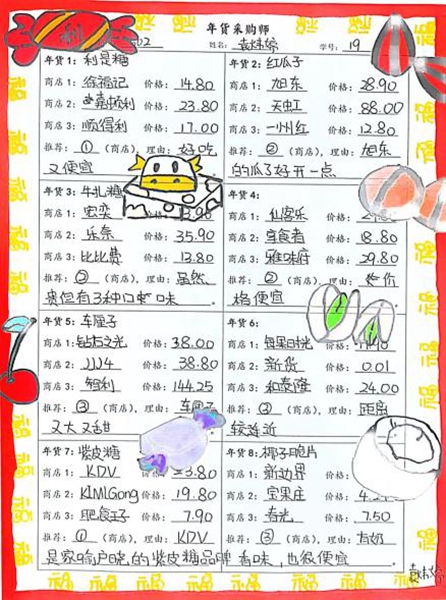 利
年货采购师
02 姓名: 学号: 19
年货1: 利是糖
商店1: 徐福记 价格: 14.80
商店2: 嘉顿利 价格: 23.80
商店3: 顺得利 价格: 17.00
推荐: ① (商店), 理由: 好吃
又便宜
年货2: 红瓜子
商店1: 旭东 价格: 28.90
商店2: 价格: 88.00
商店3: 一州红 价格: 12.80
推荐: ② (商店), 理由: 旭东
的瓜子好开一点
年货3: 牛扎糖
商店1: 宏奕
商店2: 乐奈 价格: 35.90
商店3: 比比赞 价格: 13.80
推荐: ② (商店), 理由: 虽然
贵但有3种口味。
年货4:
商店1: 仙客乐 价格:
商店2: 享食者 价格: 18.80
商店3: 雅味府 价格: 29.80
推荐: ② (商店), 理由: 价
格便宜
年货5: 车厘子
商店1: 钻石之光 价格: 38.00
商店2: JJJ4 价格: 38.80
商店3: 智利 价格: 144.25
推荐: ③ (商店), 理由: 车厘子
又大又甜
年货6:
商店1: 价格:
商店2: 新货 价格: 0.01
商店3: 和泰隆 价格: 24.00
推荐: ③ (商店), 理由: 距离
较近
年货7: 紫皮糖
商店1: KDV 价格:
商店2: KIMIGong 价格: 19.80
商店3: 价格: 7.90
推荐: ① (商店), 理由: KDV
是家喻户晓的紫皮糖品牌 香味,也很便宜
年货8: 椰子脆片
商店1: 新边界 价格:
商店2: 宝果庄 价格:
商店3: 春光 价格: 7.50
推荐: ③ (商店), 理由: 有奶
福